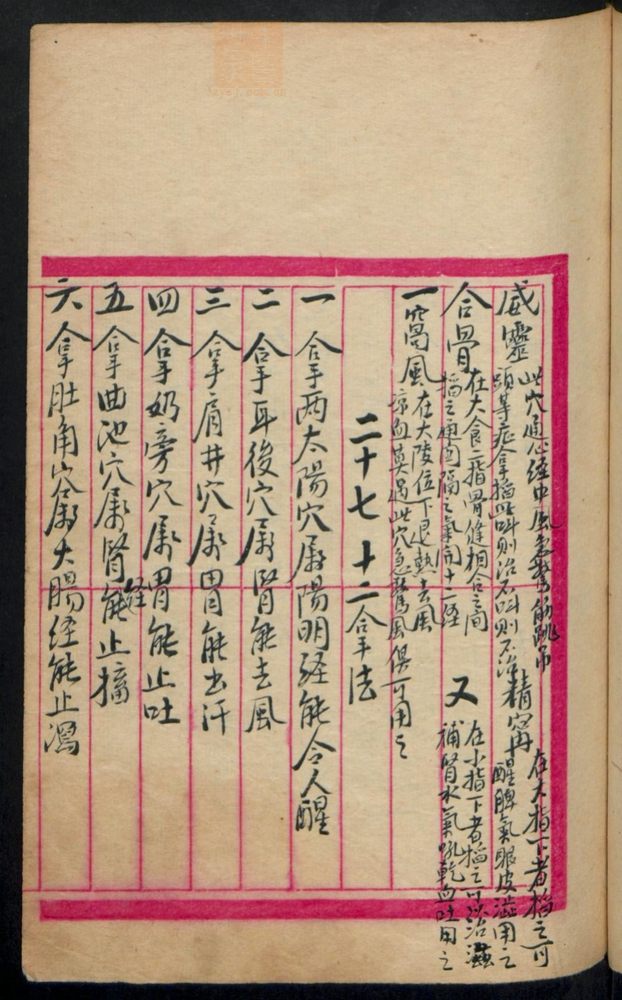 威靈 此穴通心經中風急驚筋跳吊
頭等症拿掐叫則治不叫則不治
精寧 在大指下者掐之可
醒脾氣眼皮澁用之
合骨 在大食二指骨縫相合之間
掐之通関隔之氣向十二経
又 在小指下者掐之可以治
補腎水氣吼乾血吐用之
一窩風 在大陵位下退熱去風
凉血莫過此穴急驚風俱可用之
二十七 十二拿法
一 拿兩太陽穴屬陽明経能令人醒
二 拿耳後穴屬腎能去風
三 拿肩井穴屬胃能出汗
四 拿奶旁穴屬胃能止吐
五 拿曲池穴屬腎経能止搐
六 拿肚角穴屬大腸経能止瀉